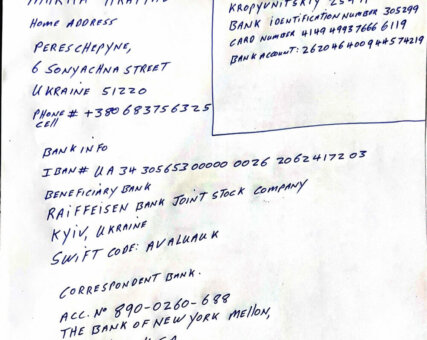 HOME ADDRESS
PERESCHEPYNE,
6 SONYACHNA STREET
UKRAINE 51220
PHONE # +380683756325
CELL
KROPYVNITSKIY
BANK IDENTIFICATION NUMBER 305299
CARD NUMBER 4149 4993 7666 6119
BANK ACCOUNT: 26204640094457 4219
BANK INFO
IBAN# UA 34 305653 00000 0026 2062417203
BENEFICIARY BANK
RAIFFEISEN BANK JOINT STOCK COMPANY
KYIV, UKRAINE
SWIFT CODE: AVALUAUK
CORRESPONDENT BANK.
ACC. Nº 890-0260-688
THE BANK OF NEW YORK MELLON,